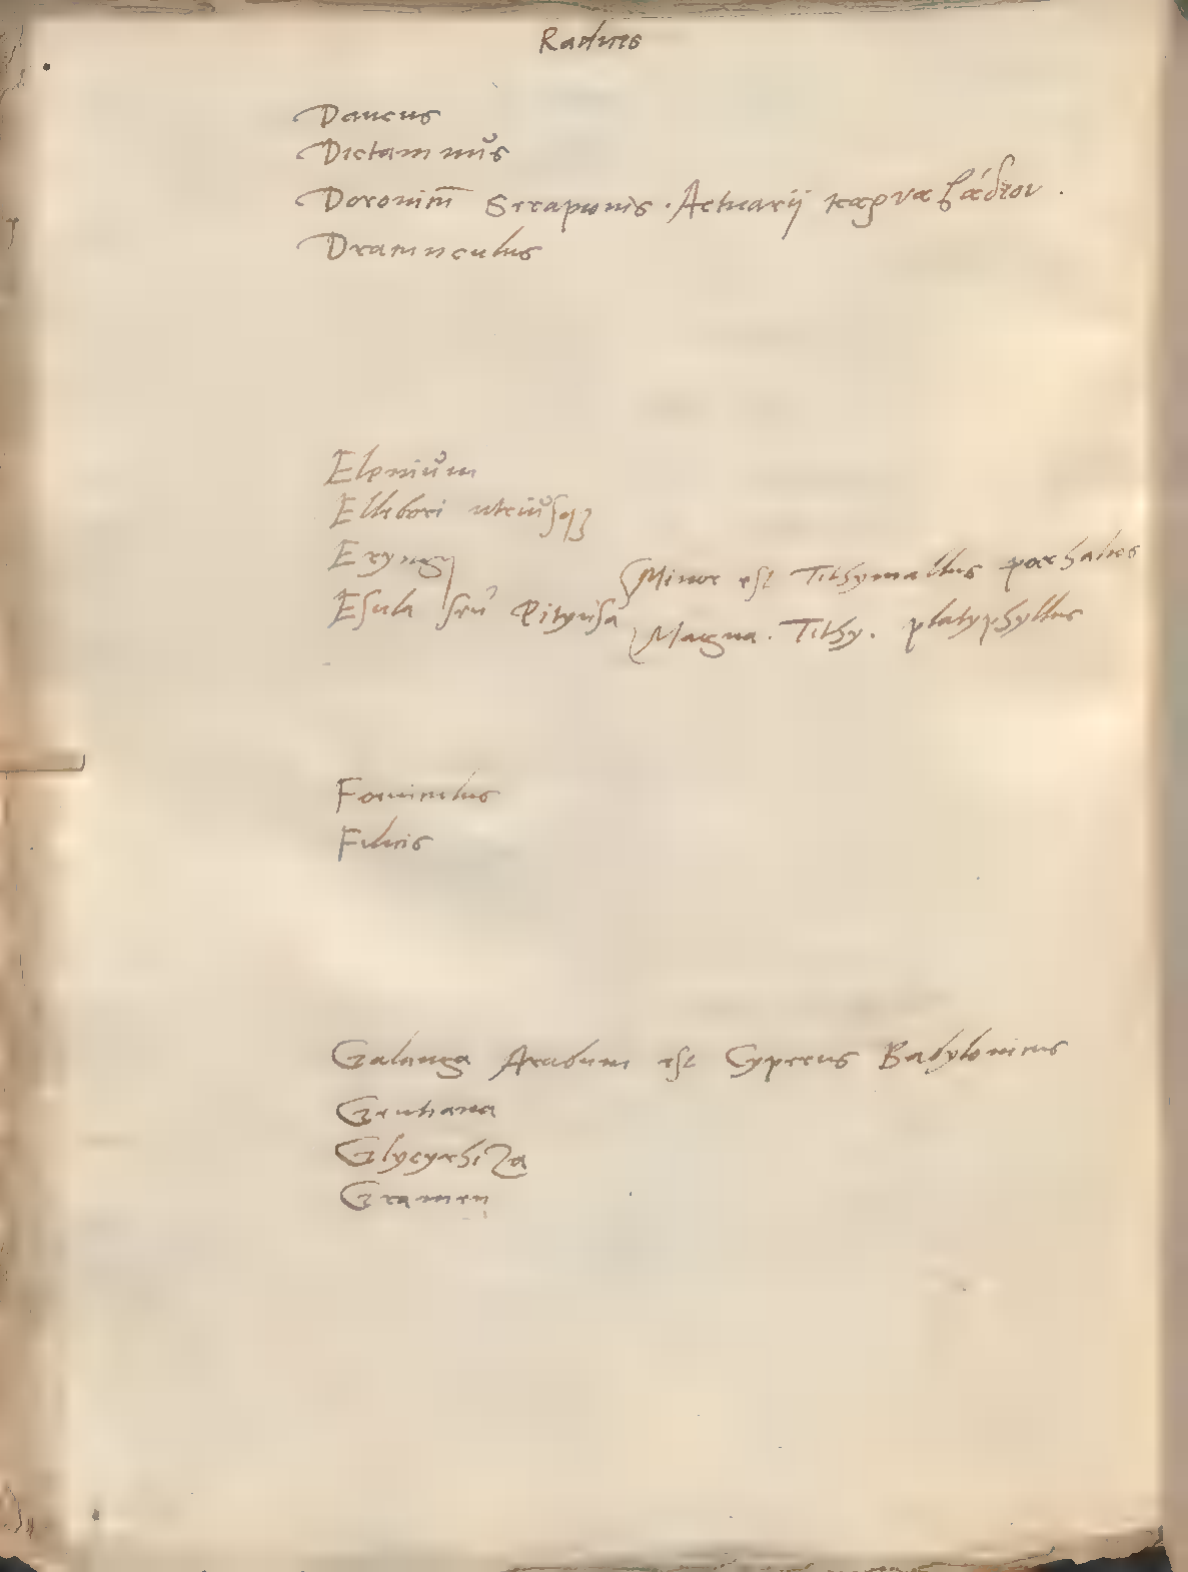 Radices
Daucus
Dictamnus
Doronicū Serapionis . Actuarii καρναβάδιον .
Dracunculus
Elenium
Ellebori utriusq3
Eryngij
Esula seu Pityusa
Minor est Tithymallus paralios
Magna . Tithy . platyphyllus
Foeniculus
Filicis
Galanga Arabum est Cyperus Babylonicus
Gentiana
Glycyrhiza
Gramen